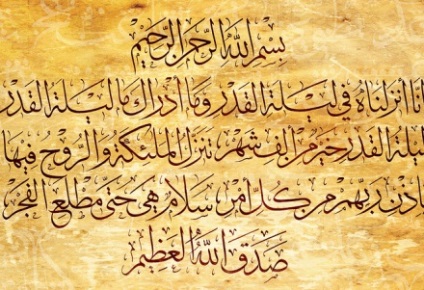 بسم الله الرحمن الرحيم
انا أنزلناه في ليلة القدر وما أدراك ما ليلة القدر
ليلة القدر خير من ألف شهر تنزل الملئكة والروح فيها
باذن ربهم من كل أمر سلام هي حتى مطلع الفجر
صدق الله العظيم